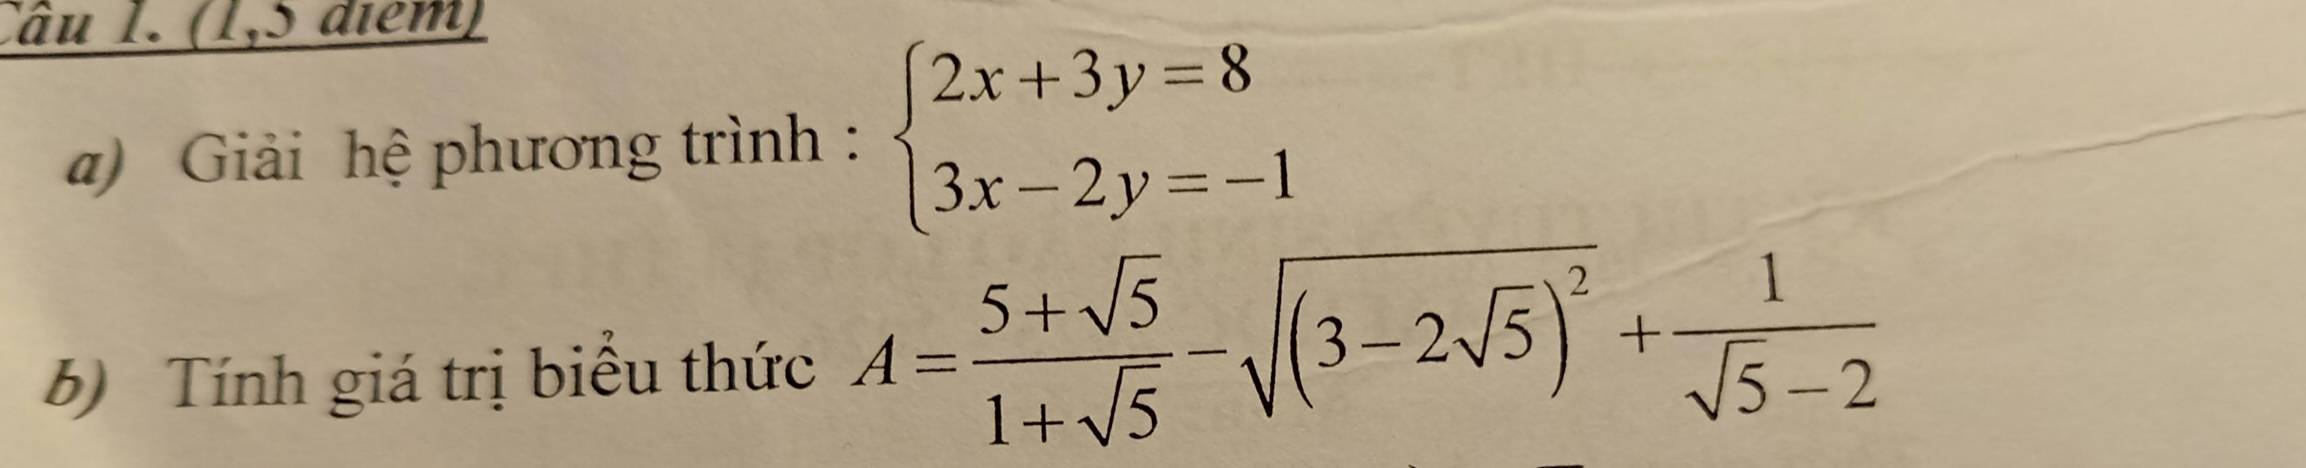 Câu 1. (1,5 điểm)
a) Giải hệ phương trình : { 2x + 3y = 8
3x − 2y = −1
b) Tính giá trị biểu thức A = (5 + √5)/(1 + √5) − √((3 − 2√5)²) + 1/(√5 − 2)